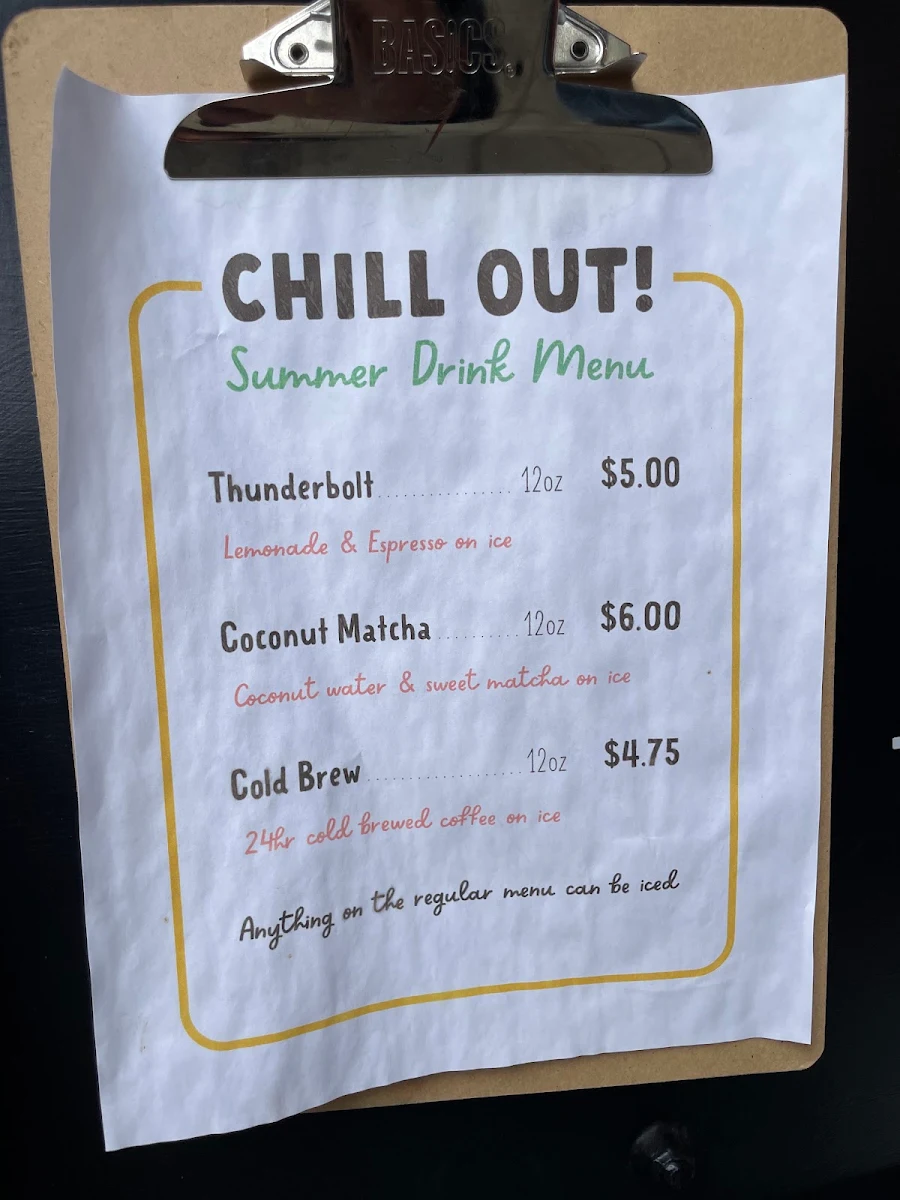 BASICS
CHILL OUT!
Summer Drink Menu
Thunderbolt................12oz $5.00
Lemonade & Espresso on ice
Coconut Matcha..........12oz $6.00
Coconut water & sweet matcha on ice
Cold Brew...................12oz $4.75
24hr cold brewed coffee on ice
Anything on the regular menu can be iced